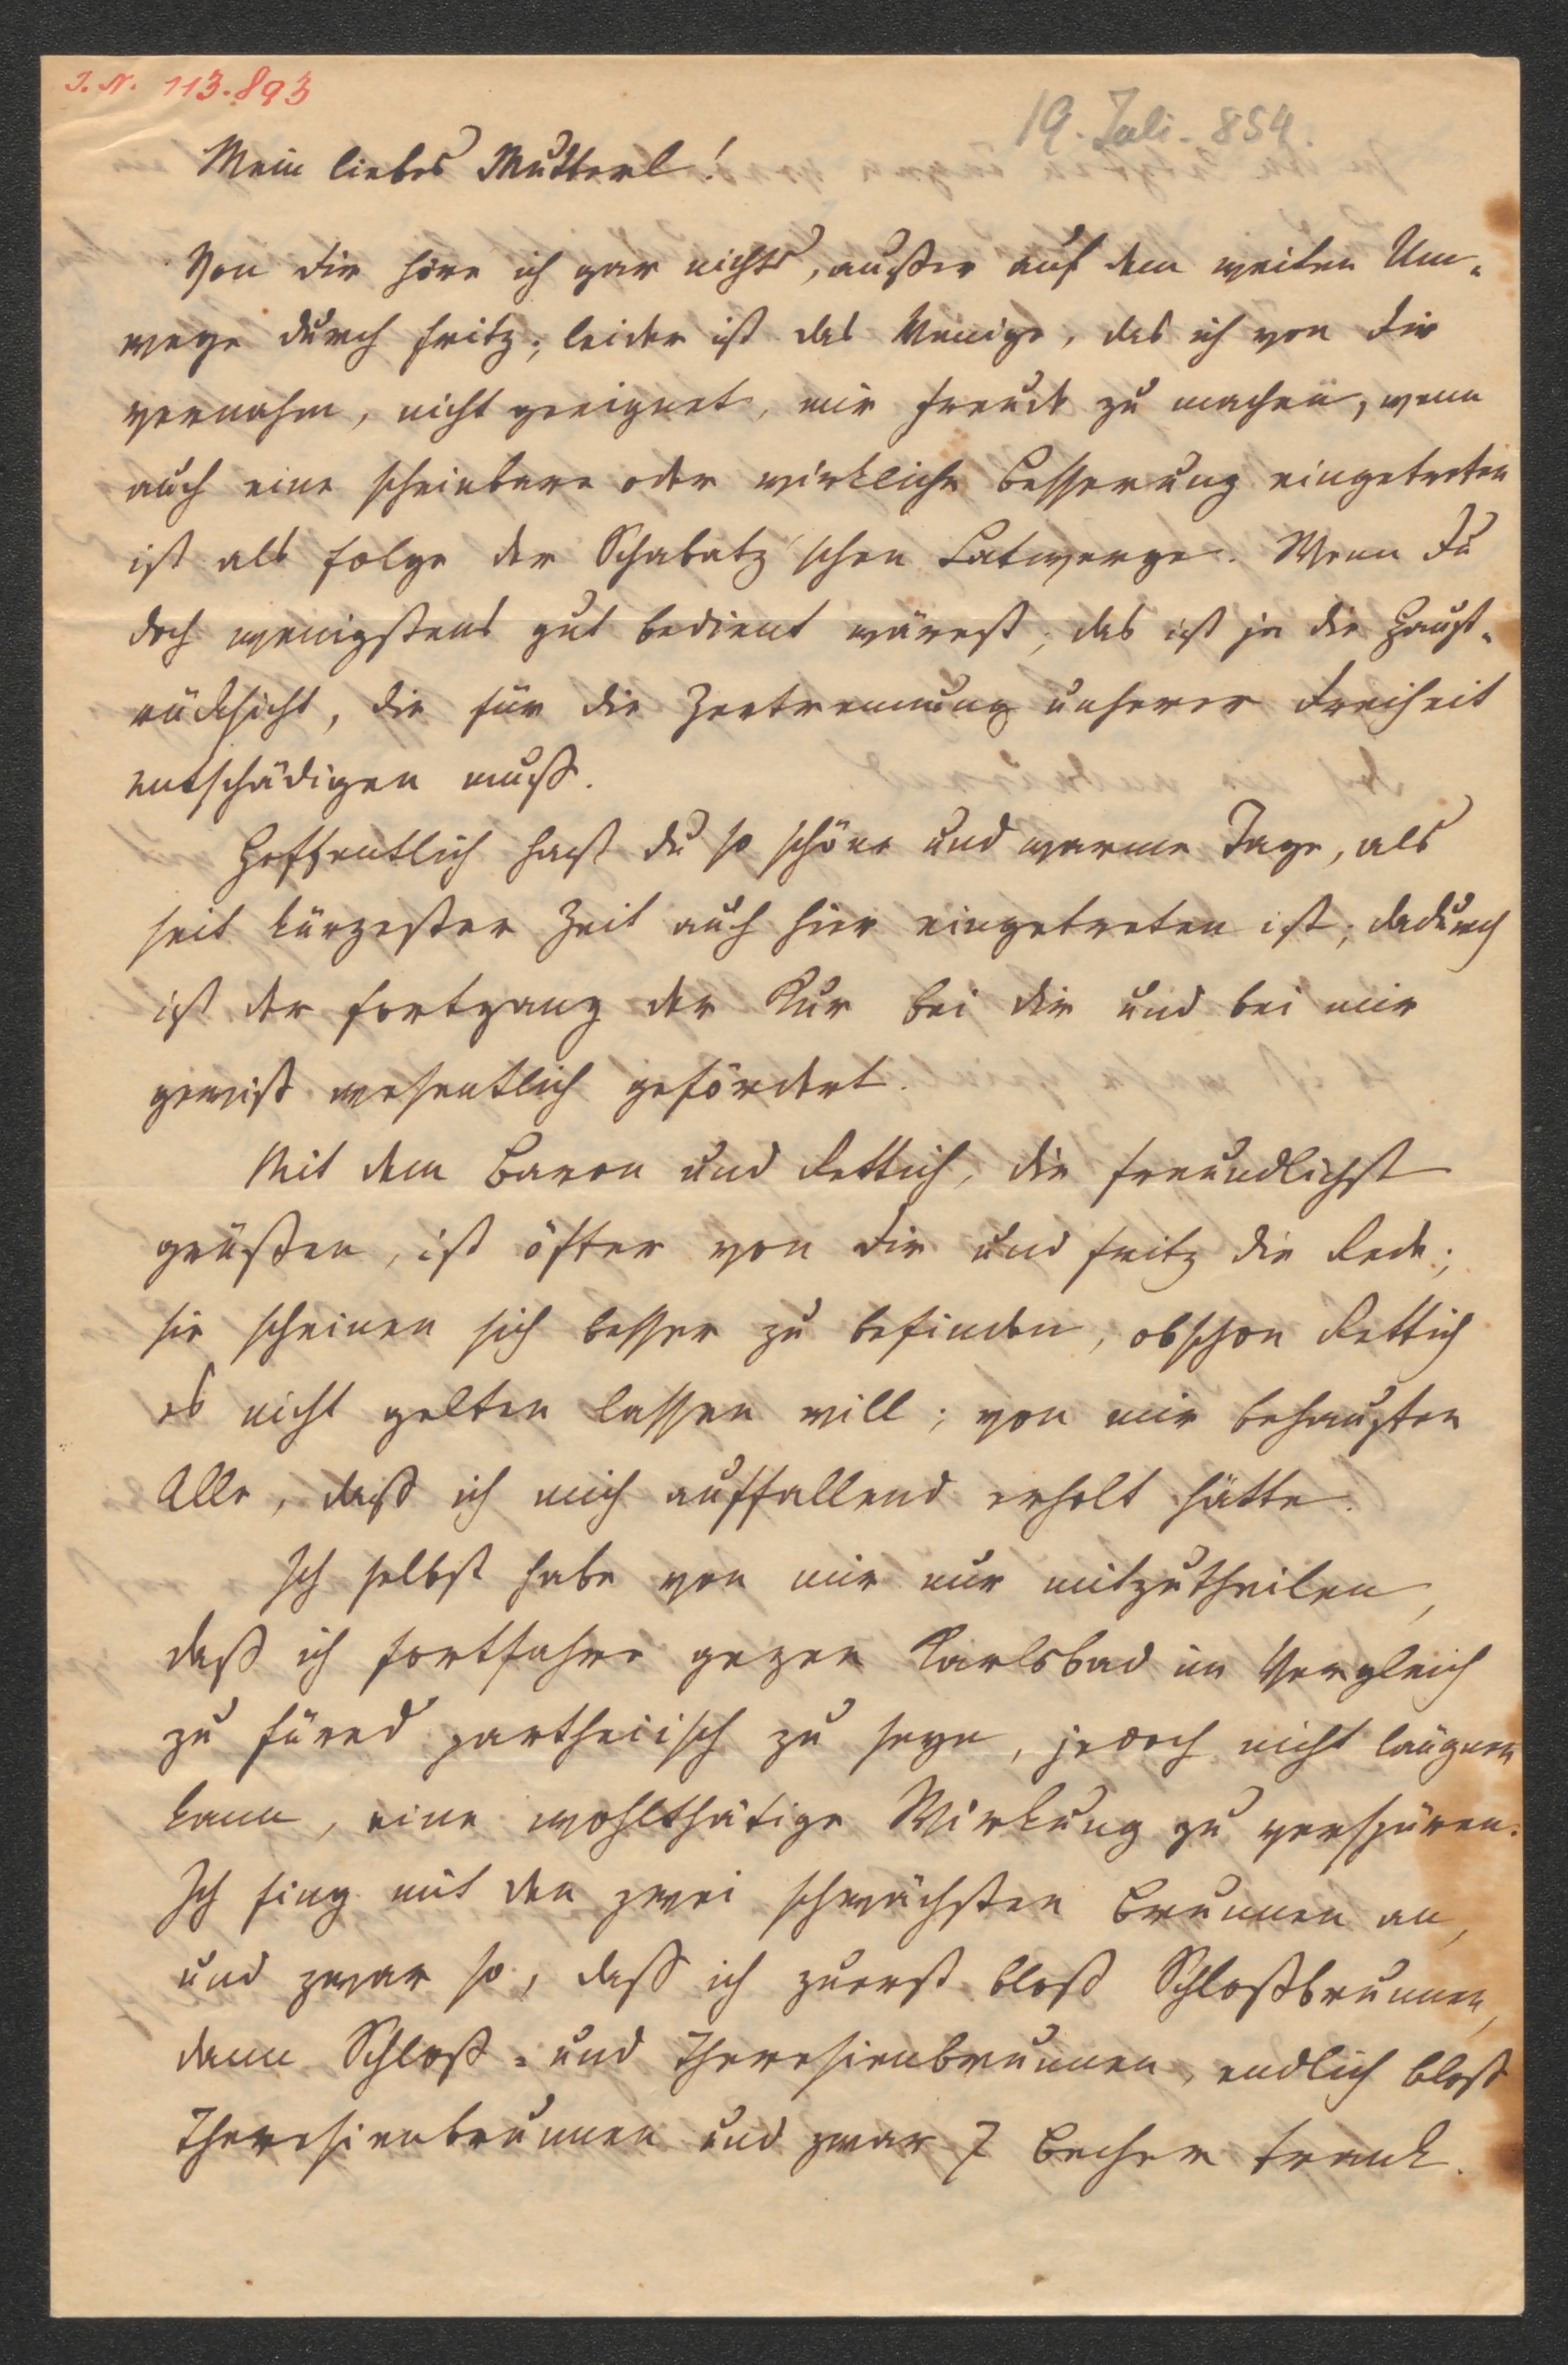 I. N. 113.893
19. Juli. 854.
Mein liebes Mutterl!
Von Dir höre ich gar nichts, außer auf dem weiten Um-
wege durch Fritz; leider ist das Wenige, das ich von Dir
vernahm, nicht geeignet, mir Freude zu machen, wenn
auch eine scheinbare oder wirkliche Besserung eingetreten
ist als Folge der Schabatz'schen Latwerge. Wenn Du
doch wenigstens gut bedient wärest; das ist ja die Haupt-
rücksicht, die für die Zertrennung unserer Dreiheit
entschädigen muß.
Hoffentlich hast du so schöne und warme Tage, als
seit kürzester Zeit auch hier eingetreten ist; dadurch
ist der Fortgang der Kur bei Dir und bei mir
gewiß wesentlich gefördert.
Mit dem Baron und Rettich, die freundlichst
grüßen, ist öfter von Dir und Fritz die Rede;
sie scheinen sich besser zu befinden, obschon Rettich
es nicht gelten lassen will; von mir behaupten
Alle, daß ich mich auffallend erholt hätte.
Ich selbst habe von mir nur mitzutheilen,
daß ich fortfahre gegen Karlsbad im Vergleich
zu Füred partheiisch zu seyn, jedoch nicht läugnen
kann, eine wohlthätige Wirkung zu verspüren.
Ich fing mit den zwei schwächsten Brunnen an,
und zwar so, daß ich zuerst bloß Schloßbrunnen,
dann Schloß- und Theresienbrunnen, endlich bloß
Theresienbrunnen und zwar 7 Becher trank.